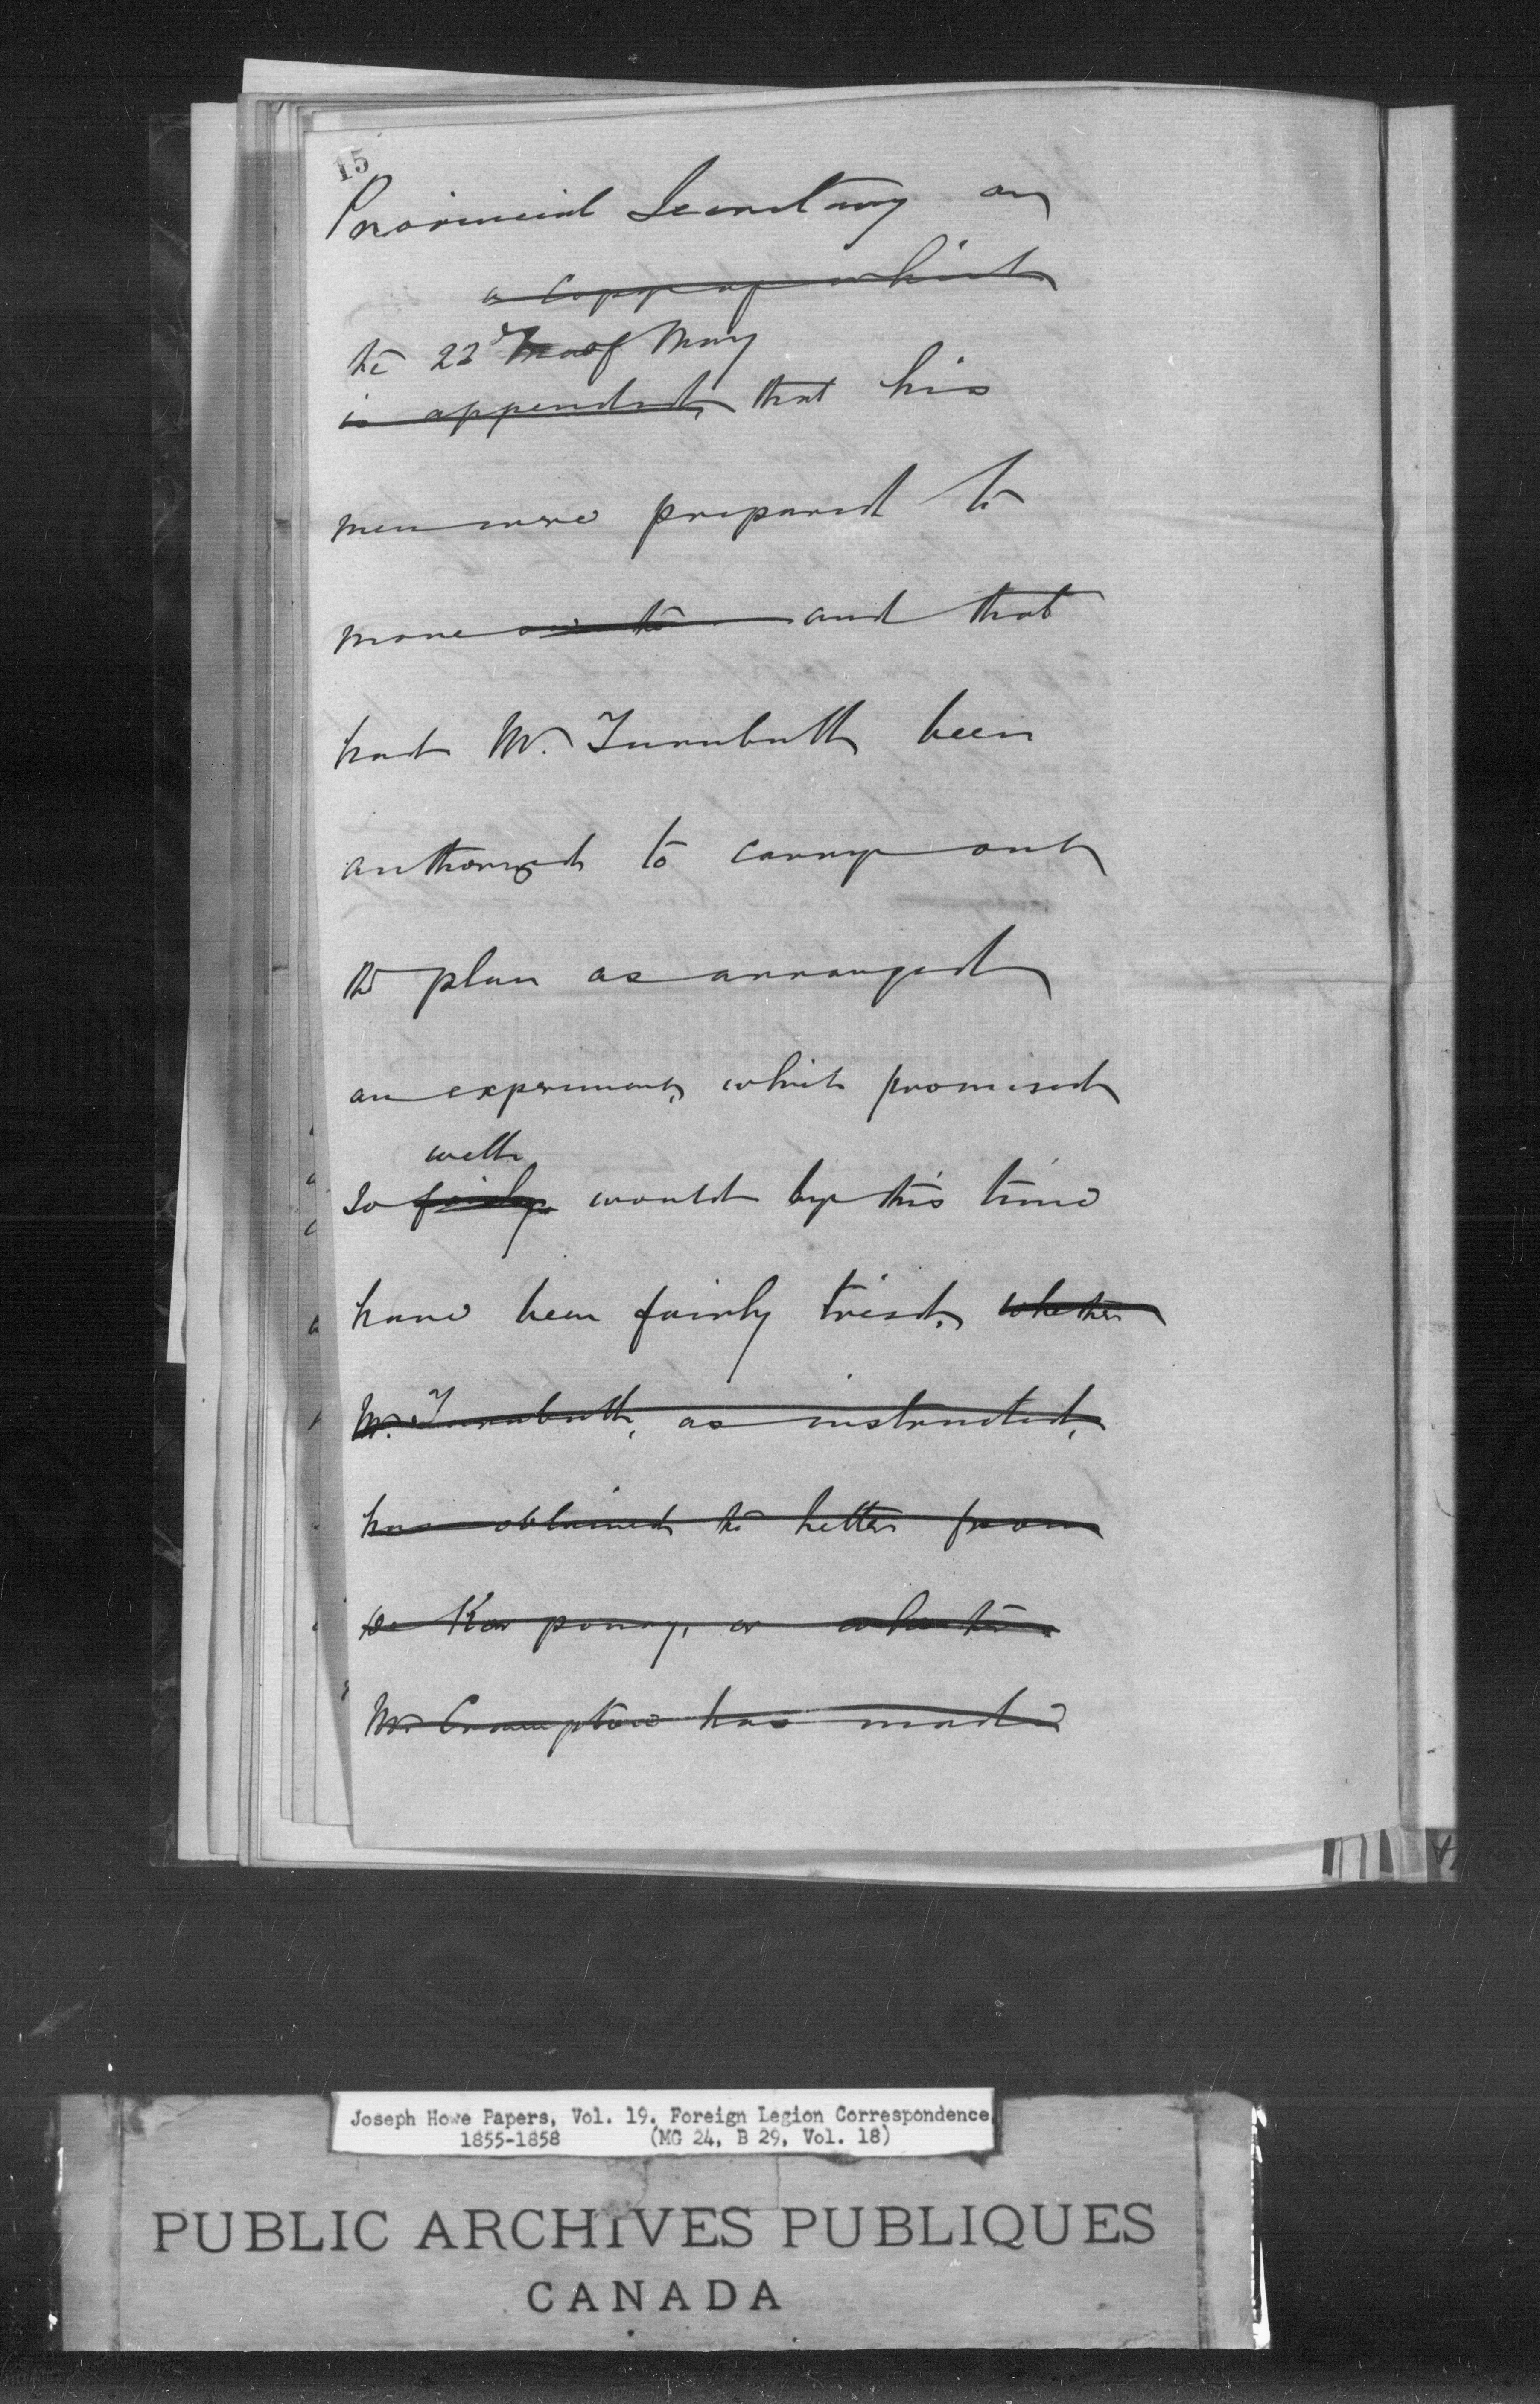 15
Provincial Secretary on
a copy of which
the 22d of May
is appended, that his
men were prepared to
move and that
had Mr. Turnbull been
authorized to carry out
the plan as arranged
an experiment, which promised
well
so fairly would by this time
have been fairly tried, whether
Mr. Turnbull, as instructed,
has obtained the letter from
De Korponay, or whether
Mr Crampton has made
Joseph Howe Papers, Vol. 19. Foreign Legion Correspondence,
1855-1858 (MG 24, B 29, Vol. 18)
PUBLIC ARCHIVES PUBLIQUES
CANADA